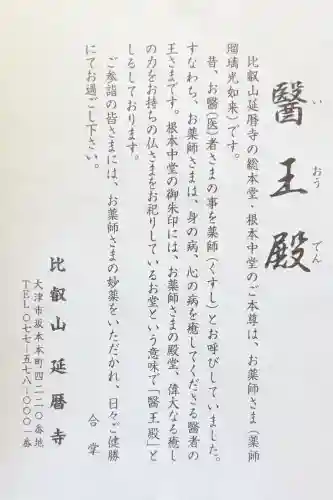 醫王殿
い おう でん
比叡山延暦寺の総本堂・根本中堂のご本尊は、お薬師さま(薬師
瑠璃光如来)です。
昔、お醫(医)者さまの事を薬師(くすし)とお呼びしていました。
すなわち、お薬師さまは、身の病、心の病を癒してくださる醫者の
王さまです。根本中堂の御朱印には、お薬師さまの殿堂、偉大なる癒し
の力をお持ちの仏さまをお祀りしているお堂という意味で「醫王殿」と
しるしております。
ご参詣の皆さまには、お薬師さまの妙薬をいただかれ、日々ご健勝
にてお過ごし下さい。
合掌
比叡山延暦寺
大津市坂本本町四二二〇番地
TEL〇七七―五七八―〇〇〇一番